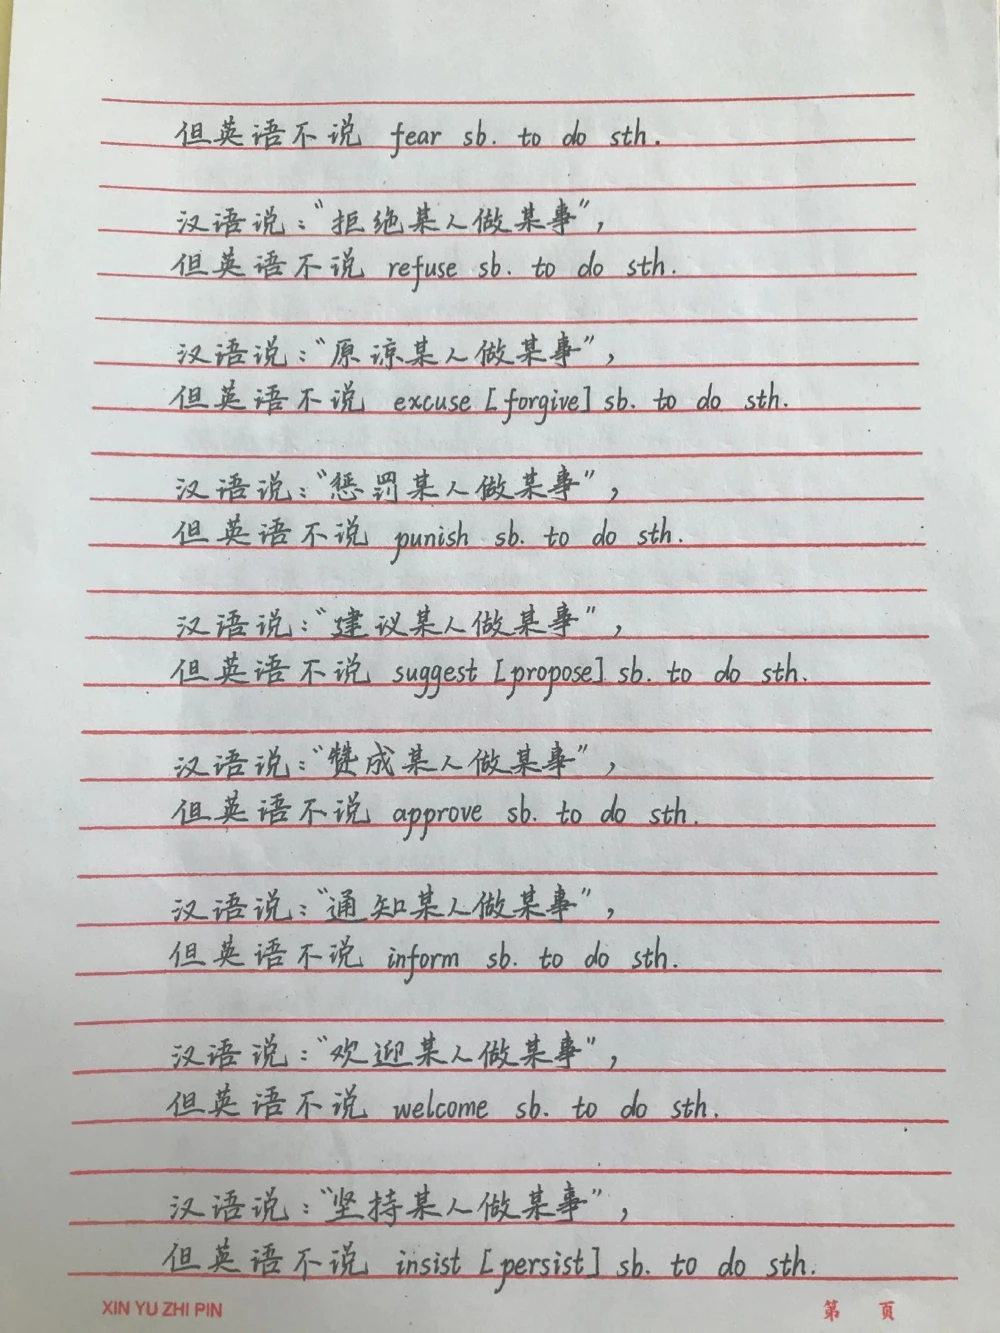 但英语不说 fear sb. to do sth.
汉语说:“拒绝某人做某事”,
但英语不说 refuse sb. to do sth.
汉语说:“原谅某人做某事”,
但英语不说 excuse [forgive] sb. to do sth.
汉语说:“惩罚某人做某事”,
但英语不说 punish sb. to do sth.
汉语说:“建议某人做某事”,
但英语不说 suggest [propose] sb. to do sth.
汉语说:“赞成某人做某事”,
但英语不说 approve sb. to do sth.
汉语说:“通知某人做某事”,
但英语不说 inform sb. to do sth.
汉语说:“欢迎某人做某事”,
但英语不说 welcome sb. to do sth.
汉语说:“坚持某人做某事”,
但英语不说 insist [persist] sb. to do sth.
XIN YU ZHI PIN 第 页